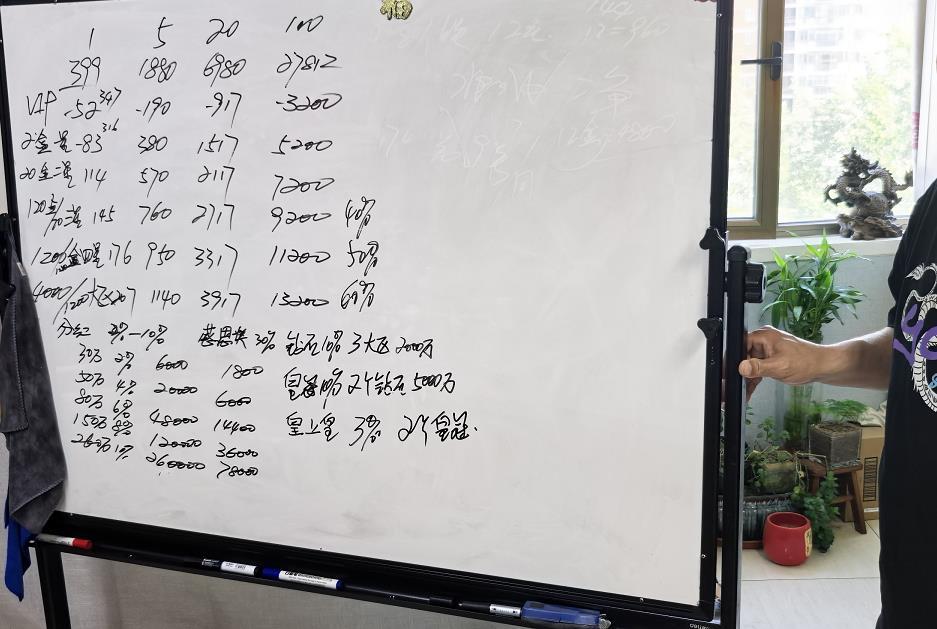 1 5 20 100
399 1880 6980 27812
VIP -52 347 -190 -917 -3200
2金一星 -83 316 380 1517 5200
20金二星 114 570 2117 7200
120 三星 145 760 2717 9200 40%
1200 四星 176 950 3317 11200 50%
4000/1200 大 207 1140 3917 13200 60%
分红 2%-10% 感恩奖 30% 钻石10% 3大 2000万
30万 2% 6000 1800
50万 4% 20000 6000 皇冠10% 2个钻石 5000万
80万 6% 48000 14400 皇上皇 3% 2个皇冠.
150万 8% 120000 36000
260万 10% 260000 78000
福